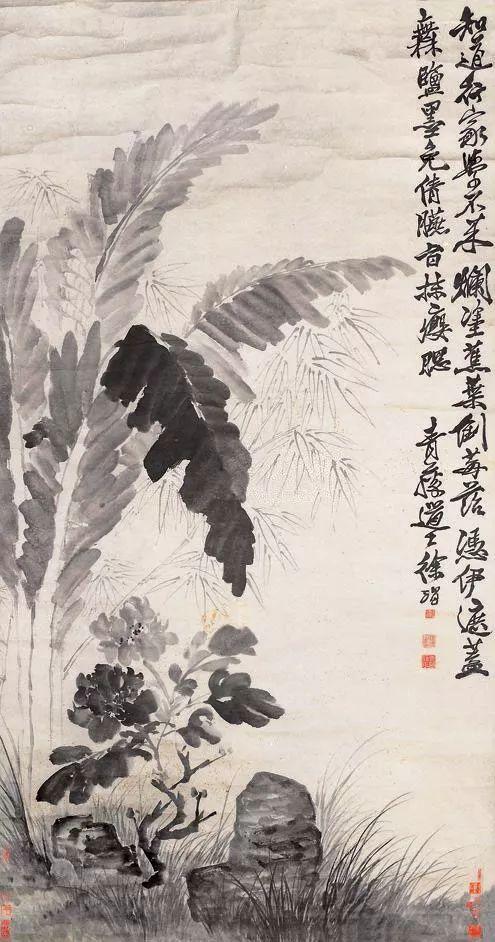 知道行家學不來爛塗蕉葉倒莓苔憑伊遮蓋
無鹽墨免倩臙脂抹癭腮 青藤道士徐渭